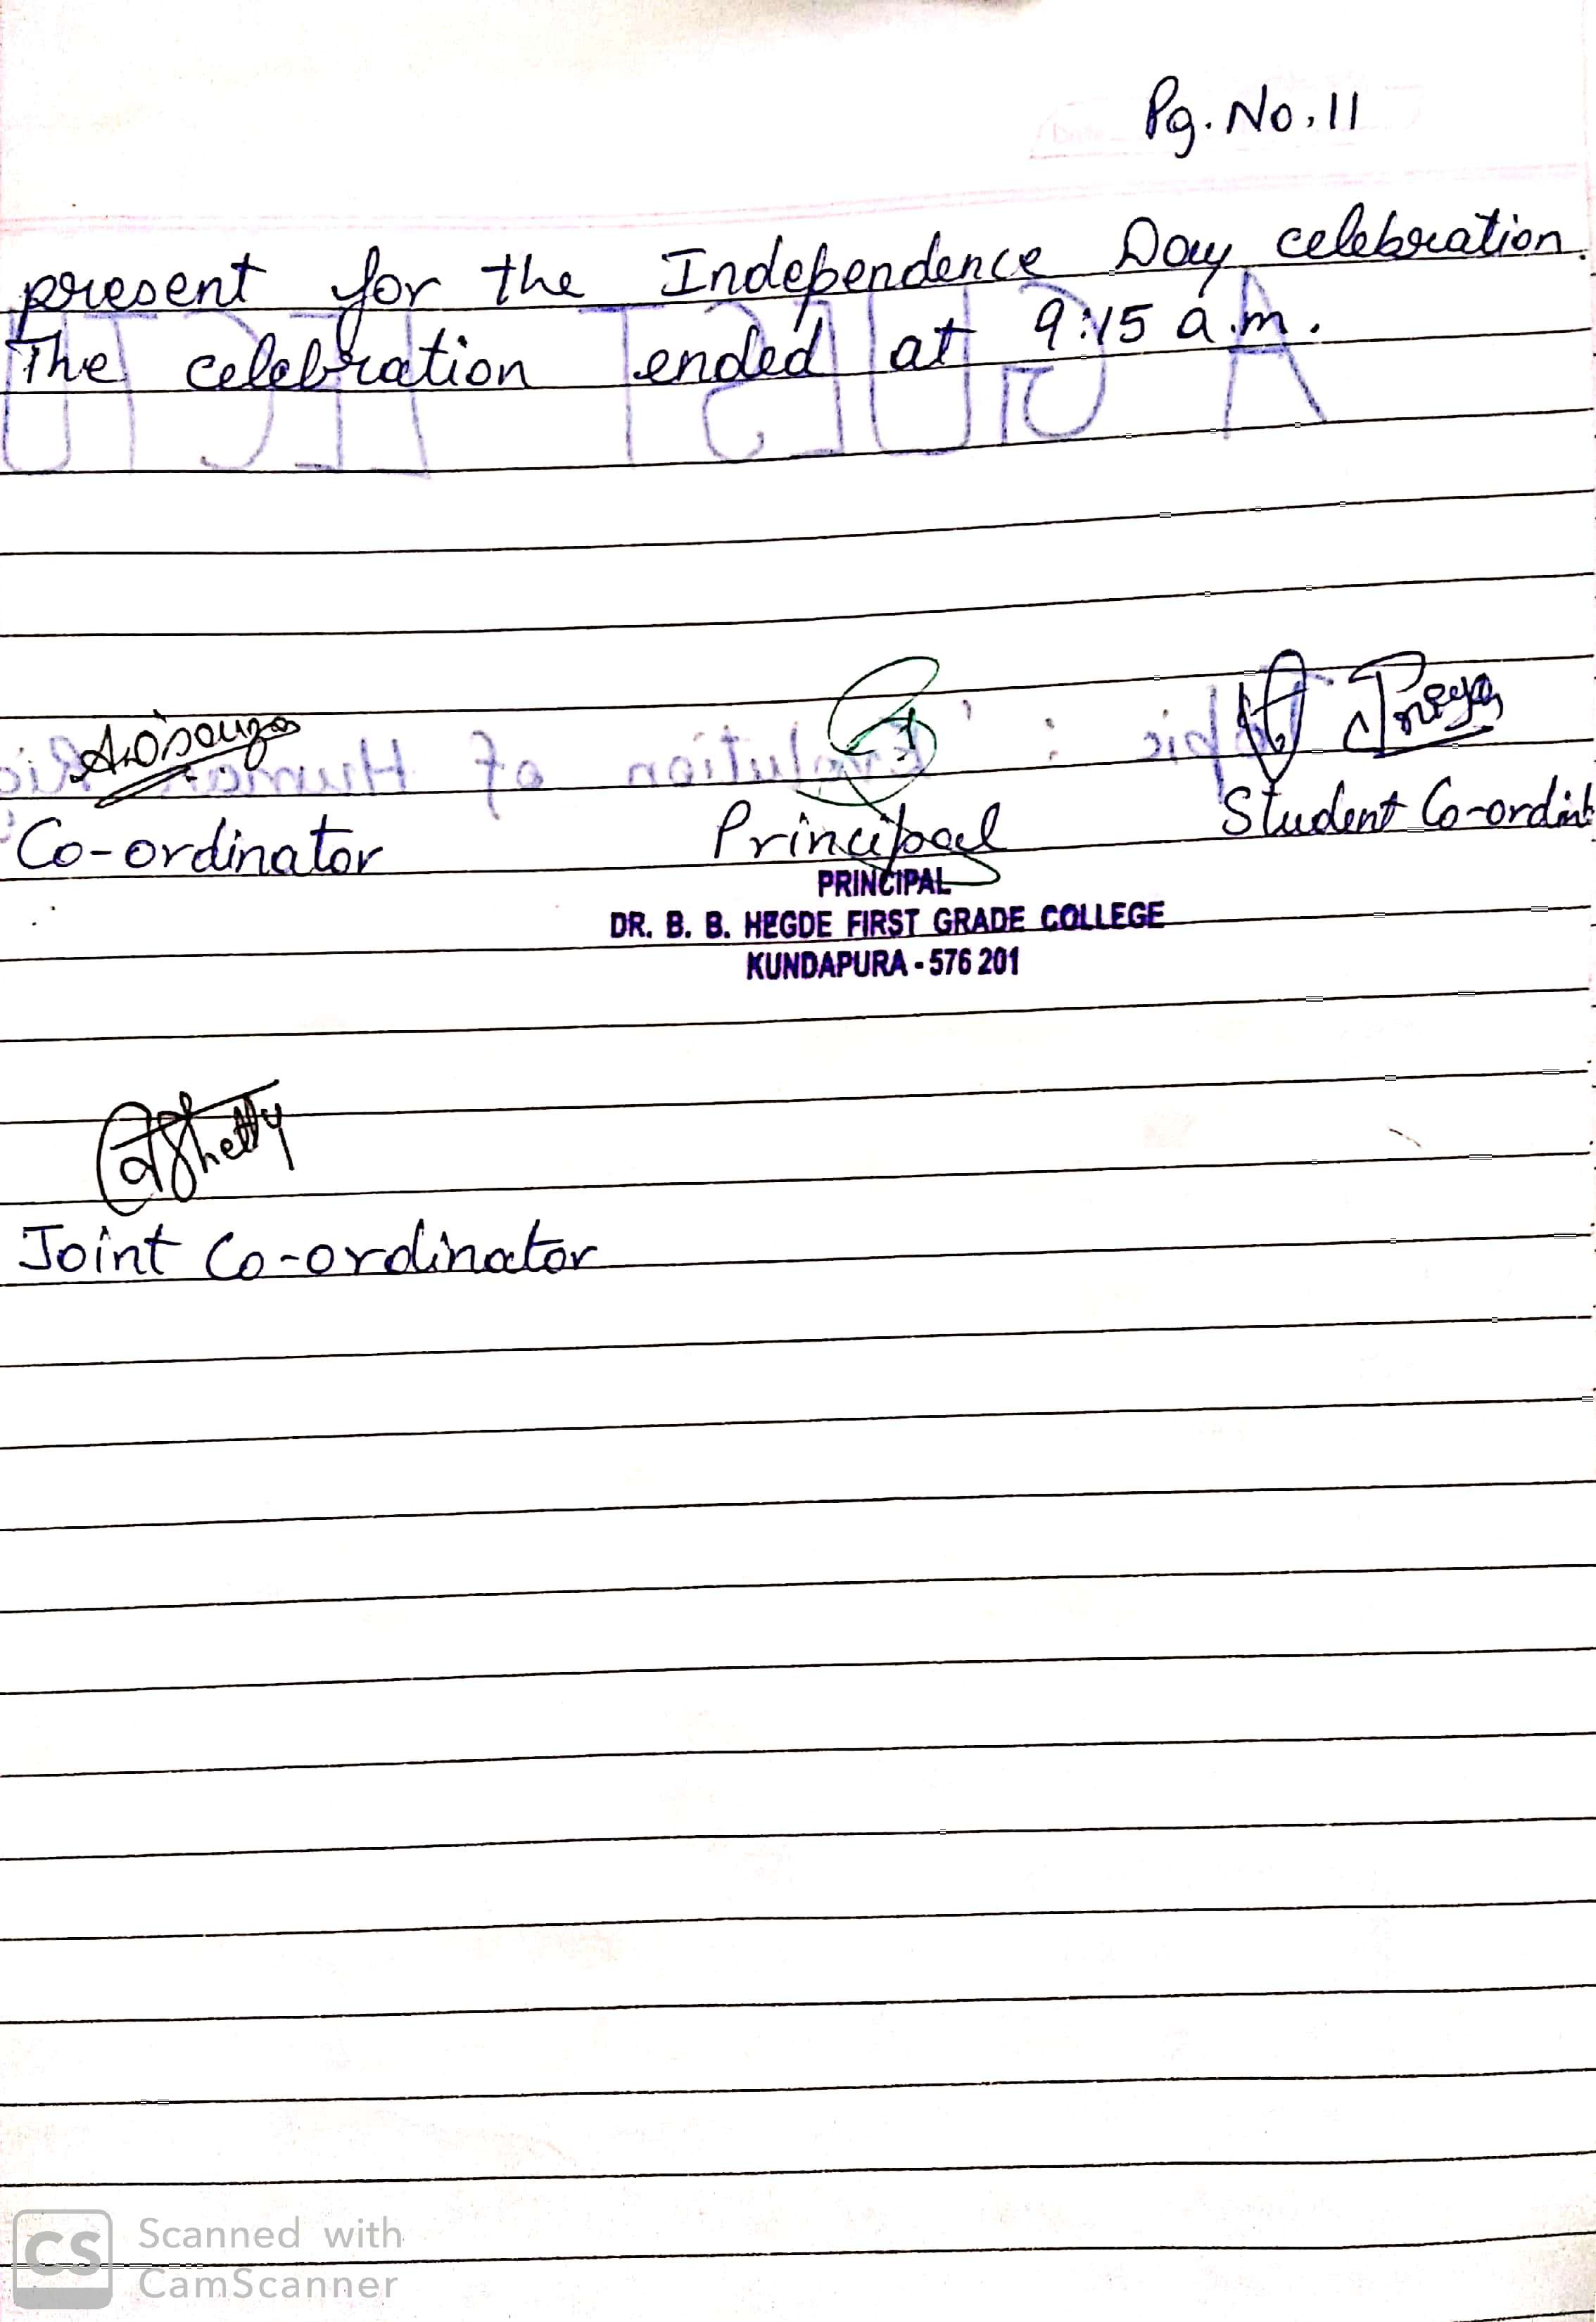 Pg. No. 11
present for the Independence Day celebration.
The celebration ended at 9:15 a.m.
Co-ordinator Principal Student Co-ordint
PRINCIPAL
DR. B. B. HEGDE FIRST GRADE COLLEGE
KUNDAPURA - 576 201
Shetty
Joint Co-ordinator
CS Scanned with
CamScanner